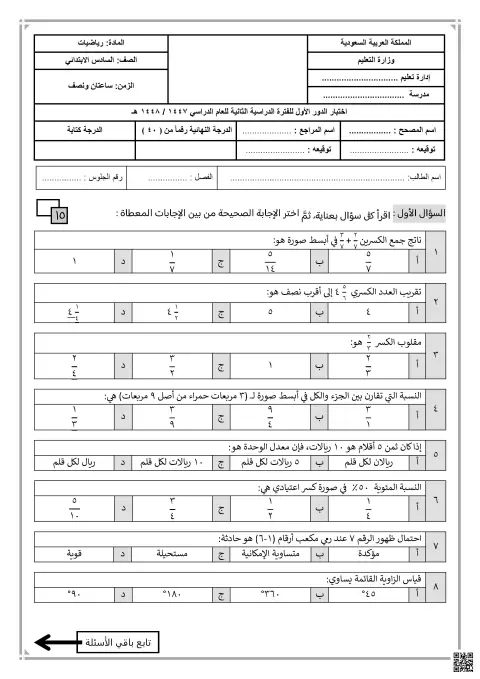 المملكة العربية السعودية
وزارة التعليم
إدارة تعليم ..............................
مدرسة ................................
المادة: رياضيات
الصف: السادس الابتدائي
الزمن: ساعتان ونصف
اختبار الدور الأول للفترة الدراسية الثانية للعام الدراسي ١٤٤٧ / ١٤٤٨ هـ
اسم المصحح : ................ اسم المراجع : ................... الدرجة النهائية رقماً من ( ٤٠ ) الدرجة كتابة
توقيعه : ....................... توقيعه : .......................
اسم الطالب: ............................................................ الفصل : ............... رقم الجلوس : ...............
السؤال الأول : اقرأ كل سؤال بعناية، ثمَّ اختر الإجابة الصحيحة من بين الإجابات المعطاة : ١٥
١ ناتج جمع الكسرين ٢/٧ + ٣/٧ في أبسط صورة هو:
أ ٥/٧ ب ٥/١٤ ج ١/٧ د ١
٢ تقريب العدد الكسري ٤ ٥/٦ إلى أقرب نصف هو:
أ ٤ ب ٥ ج ٤ ١/٢ د ٤ ١/٤
٣ مقلوب الكسر ٢/٣ هو:
أ ٢/٣ ب ١ ج ٣/٢ د ٢/٤
٤ النسبة التي تقارن بين الجزء والكل في أبسط صورة لـ (٣ مربعات حمراء من أصل ٩ مربعات) هي:
أ ٣/١ ب ٩/٤ ج ٣/٩ د ١/٣
٥ إذا كان ثمن ٥ أقلام هو ١٠ ريالات، فإن معدل الوحدة هو:
أ ريالان لكل قلم ب ٥ ريالات لكل قلم ج ١٠ ريالات لكل قلم د ريال لكل قلم
٦ النسبة المئوية ٥٠٪ في صورة كسر اعتيادي هي:
أ ١/٤ ب ١/٢ ج ٣/٤ د ٥/١٠
٧ احتمال ظهور الرقم ٧ عند رمي مكعب أرقام (١-٦) هو حادثة:
أ مؤكدة ب متساوية الإمكانية ج مستحيلة د قوية
٨ قياس الزاوية القائمة يساوي:
أ ٤٥° ب ٣٦٠° ج ١٨٠° د ٩٠°
تابع باقي الأسئلة